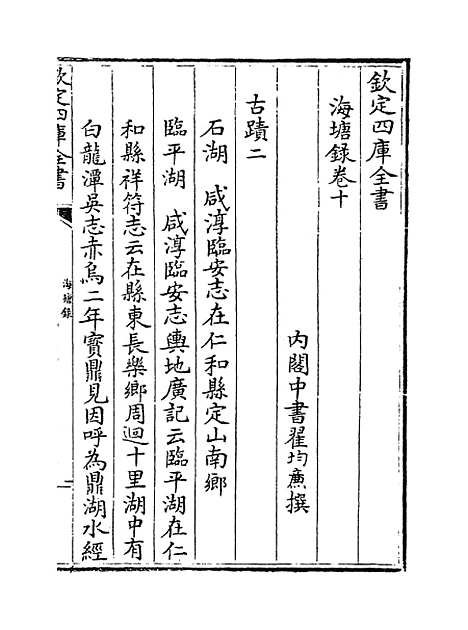 欽定四庫全書
海塘録卷十
内閣中書翟均亷撰
古蹟二
石湖　咸淳臨安志在仁和縣定山南鄉
臨平湖　咸淳臨安志輿地廣記云臨平湖在仁
和縣祥符志云在縣東長樂鄉周迴十里湖中有
白龍潭吳志赤烏二年寶鼎見因呼為鼎湖水經
欽定四庫全書
海塘録
一